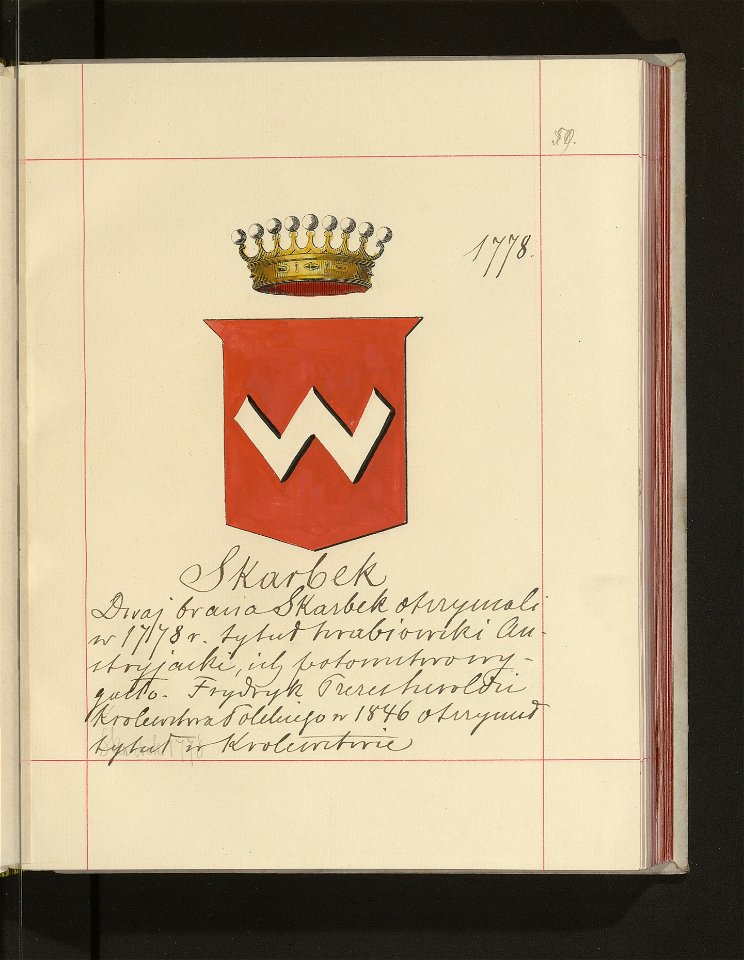 59.
1778.
Skarbek
Dwaj bracia Skarbek otrzymali
w 1778 r. tytuł hrabiowski Au-
stryjacki, ich potomstwo wy-
gasło. Frydryk
Królewstwa Polskiego w 1846 otrzymał
tytuł w Królewstwie